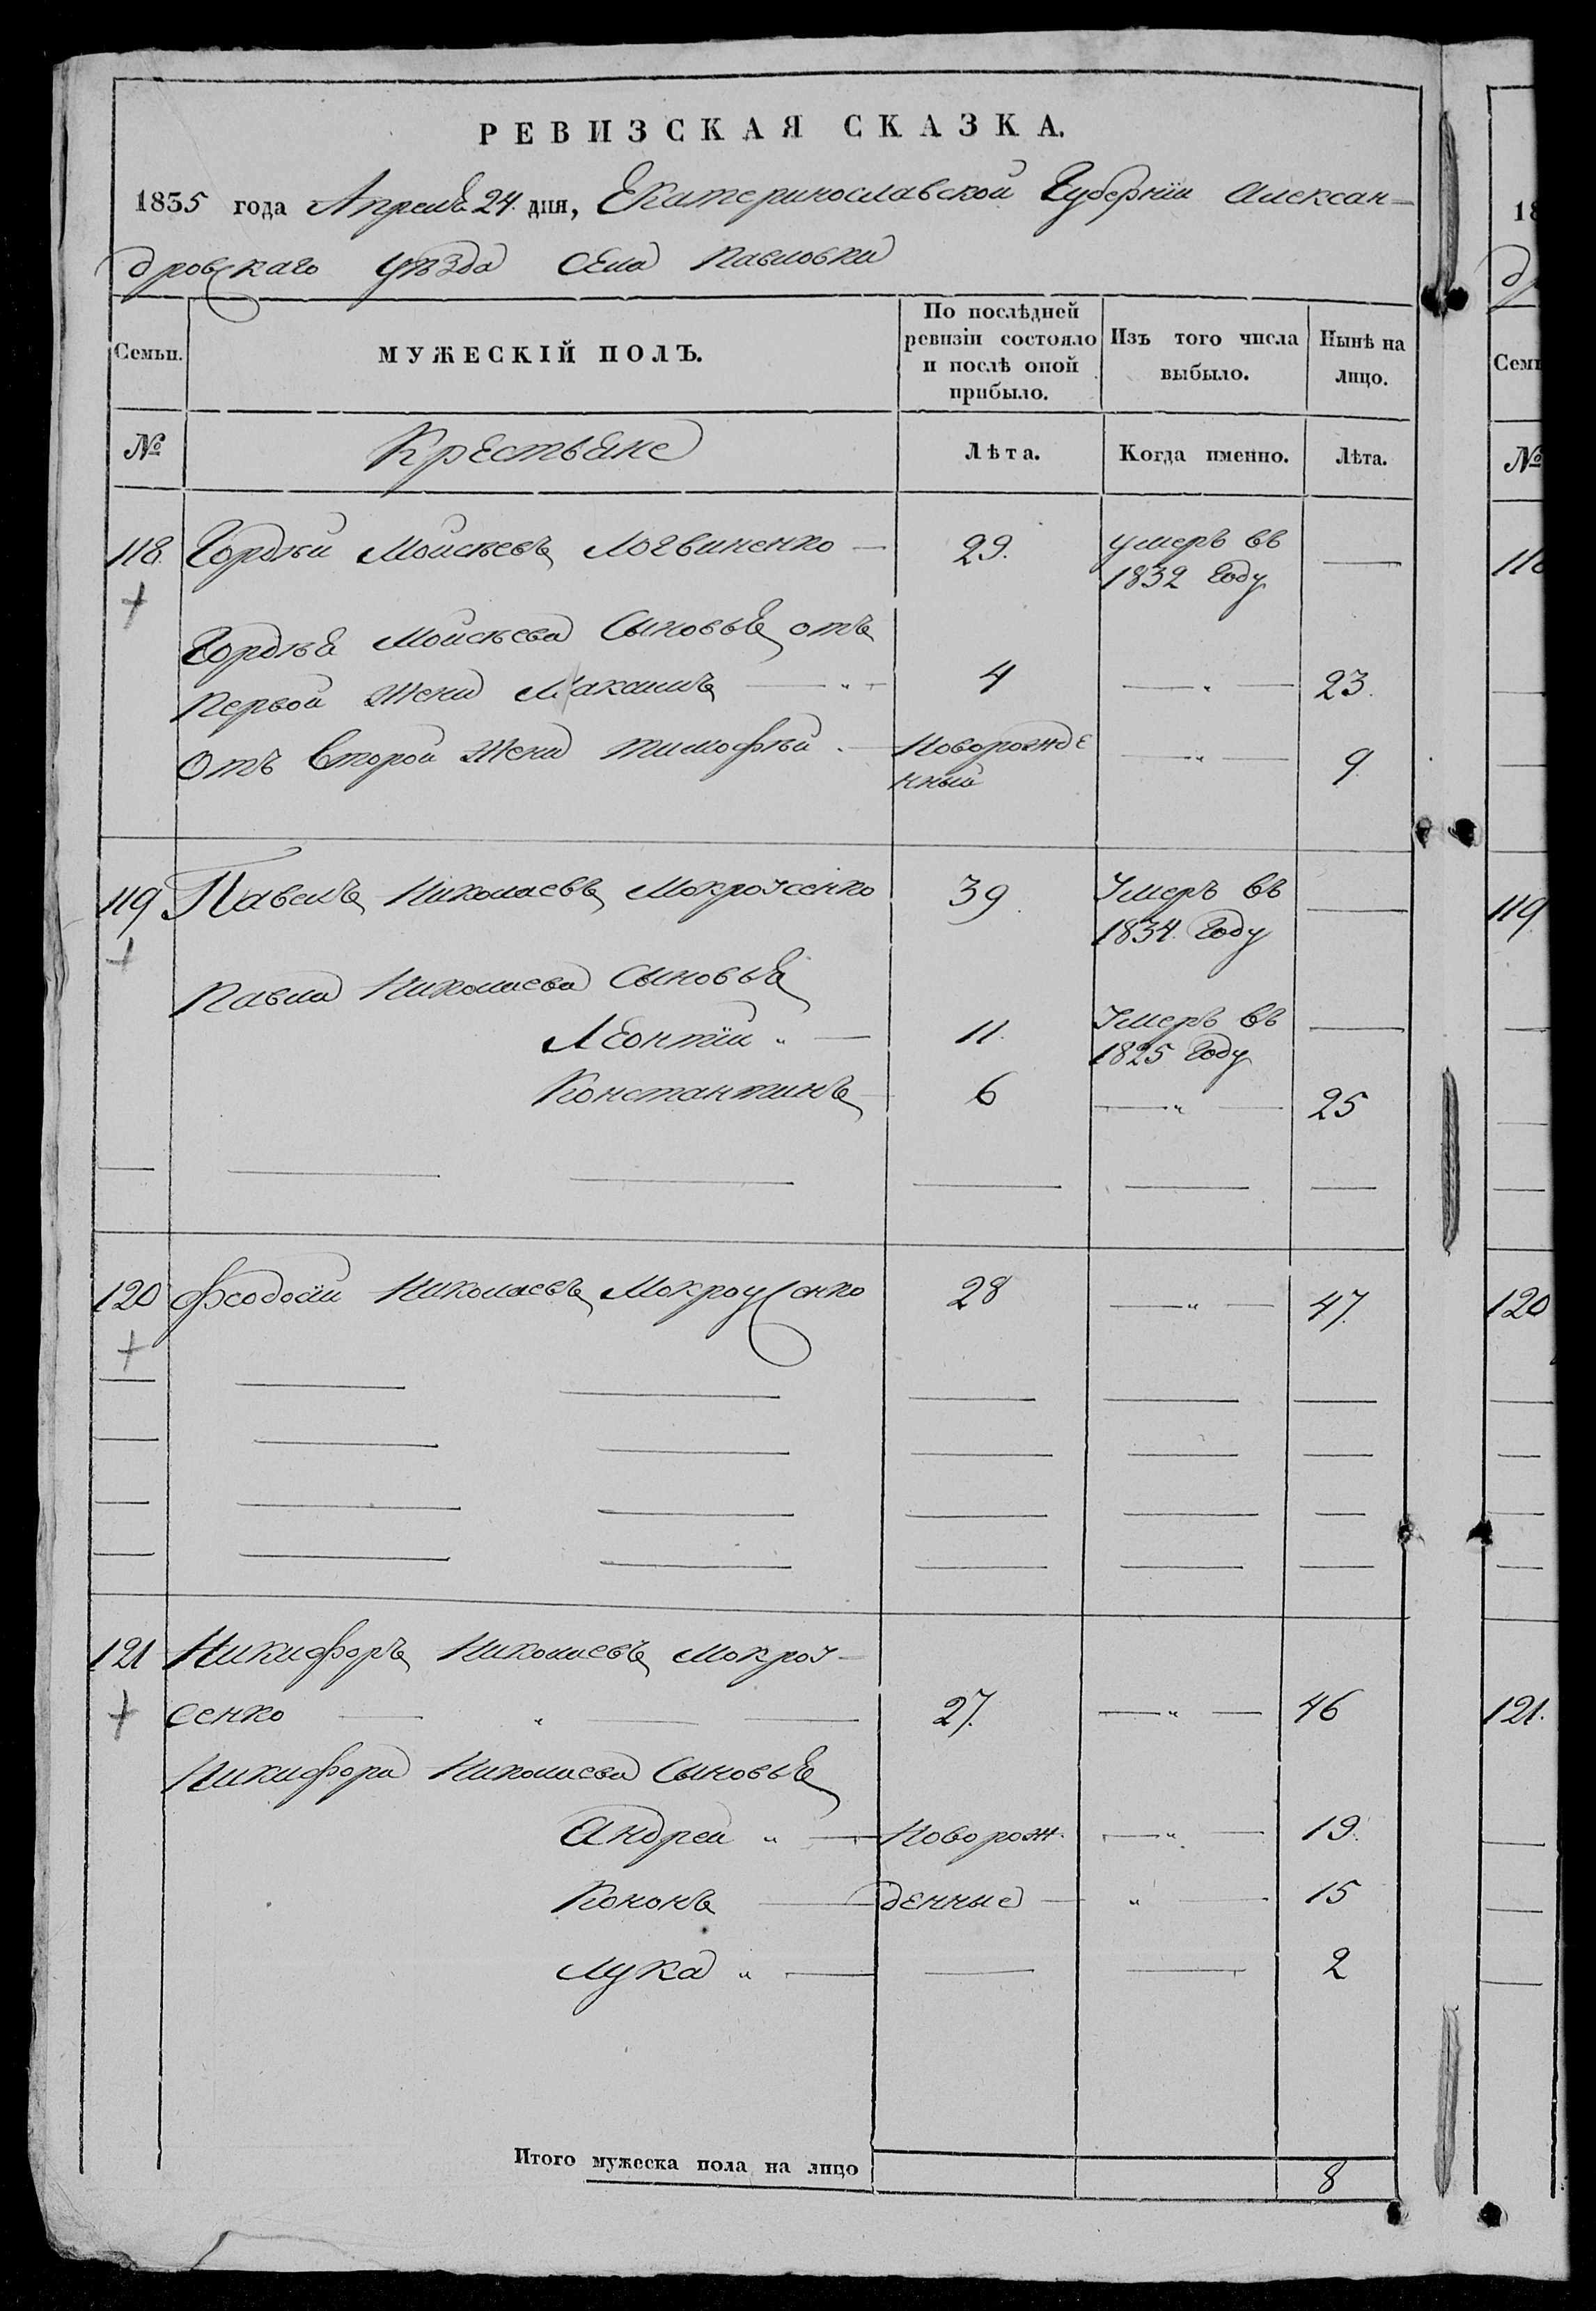 РЕВИЗСКАЯ СКАЗКА.
1835 года Апреля 24. дня, Екатеринославской Губернїи Алексан-
дровскаго уѣзда Села Павловки
Семьи.
МУЖЕСКІЙ ПОЛЪ.
По послѣдней ревизіи состояло и послѣ оной прибыло.
Изъ того числа выбыло.
Нынѣ на лицо.
№
Крестьяне
Лѣта.
Когда именно.
Лѣта.
118. Гордѣй Моисѣевъ Логвиненко — 29. умеръ въ 1832 Году —
Гордѣя Моисѣева Сыновья отъ
первой жены Максимъ — 4 — " — 23.
Отъ второй жены тимофѣй — Новорожденный — " — 9.
119 Павелъ Николаевъ Мокроусенко 39. Умеръ въ 1834. Году —
Павла Николаева Сыновья
Леонтїй " — 11. Умеръ въ 1825 Году —
Константинъ — 6 — " — 25
120 Феодосїй Николаевъ Мокроусенко 28 — " — 47.
121 Никифоръ Николаевъ Мокроу-
сенко — " — 27. — " — 46
Никифора Николаева Сыновья
Андрей " — Новорож- — " — 19.
Кононъ — денные — " — 15
Лука " — — — 2
Итого мужеска пола на лицо 8
18
Семь
№
118
119
120
121.